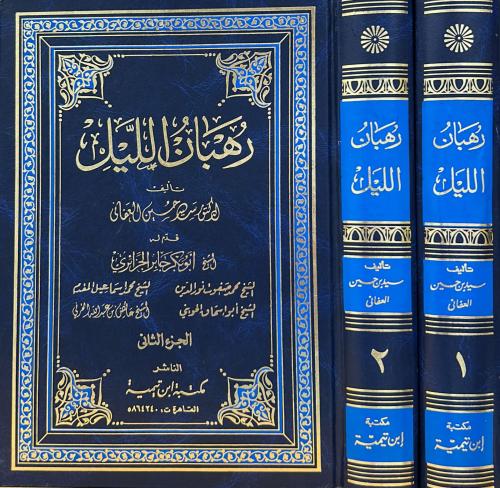 رهبان الليل
تأليف
الدكتور سيد حسين العفاني
قدم له
الشيخ أبو بكر جابر الجزائري
الشيخ محمد صفوت نور الدين الشيخ محمد إسماعيل المقدم
الشيخ أبو إسحاق الحويني الشيخ عائض بن عبد الله القرني
الجزء الثاني
الناشر
مكتبة ابن تيمية
القاهرة ت: ٥٨٦٤٢٤٠٠
رهبان
الليل
تأليف
سيد بن حسين
العفاني
٢
مكتبة
ابن تيمية
رهبان
الليل
تأليف
سيد بن حسين
العفاني
١
مكتبة
ابن تيمية